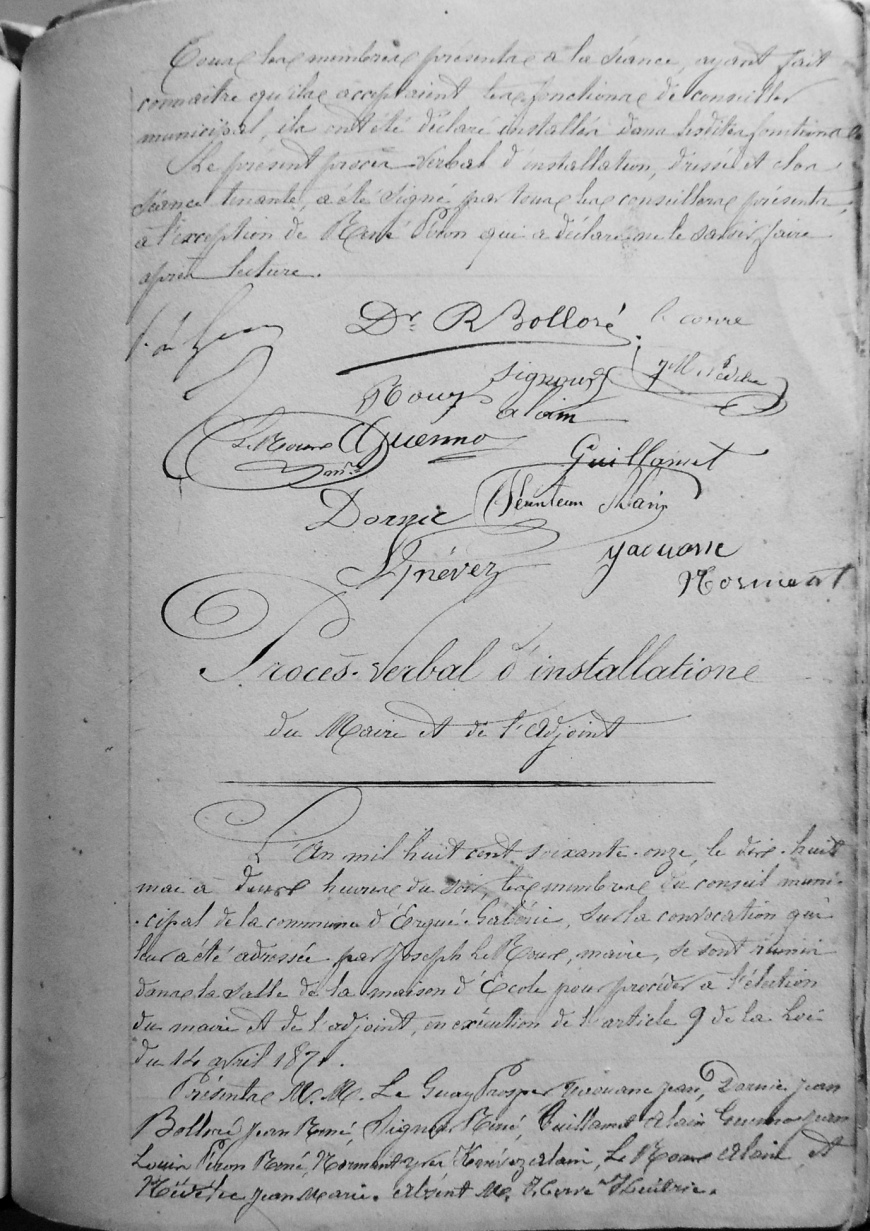 Tous les membres présents à la séance, ayant fait
connaître qu'ils acceptaient les fonctions de conseiller
municipal, ils ont été déclaré installés dans lesdites fonctions
Le présent procès-verbal d'installation, dressé et clos
séance tenante, a été signé par tous les conseillers présents,
à l'exception de René Péron qui a déclaré ne le savoir faire
après lecture.
Dr R Bolloré
Rouz Signour
alain
Le Roux Guenno
mre
Guillamet
Dornic
Knévez yaouanc
Normant
Procès-verbal d'installation
du Maire et de l'Adjoint
L'An mil huit cent soixante-onze, le dix-huit
mai à deux heures du soir, les membres du conseil muni-
cipal de la commune d'Ergué-Gabéric, sur la convocation qui
leur a été adressée par Joseph Le Roux, maire, se sont réunis
dans la salle de la maison d'École pour procéder à l'élection
du maire et de l'adjoint, en exécution de l'article 9 de la Loi
du 14 avril 1871.
Présents M.M. Le Guay Prosper, Yaouanc Jean, Dornic Jean
Bolloré Jean René, Signour René, Guillamet Alain Guenno Jean
Louis Péron René, Normant Yves Knévez Alain, Le Roux Alain, et
Jean Marie. Absent M.